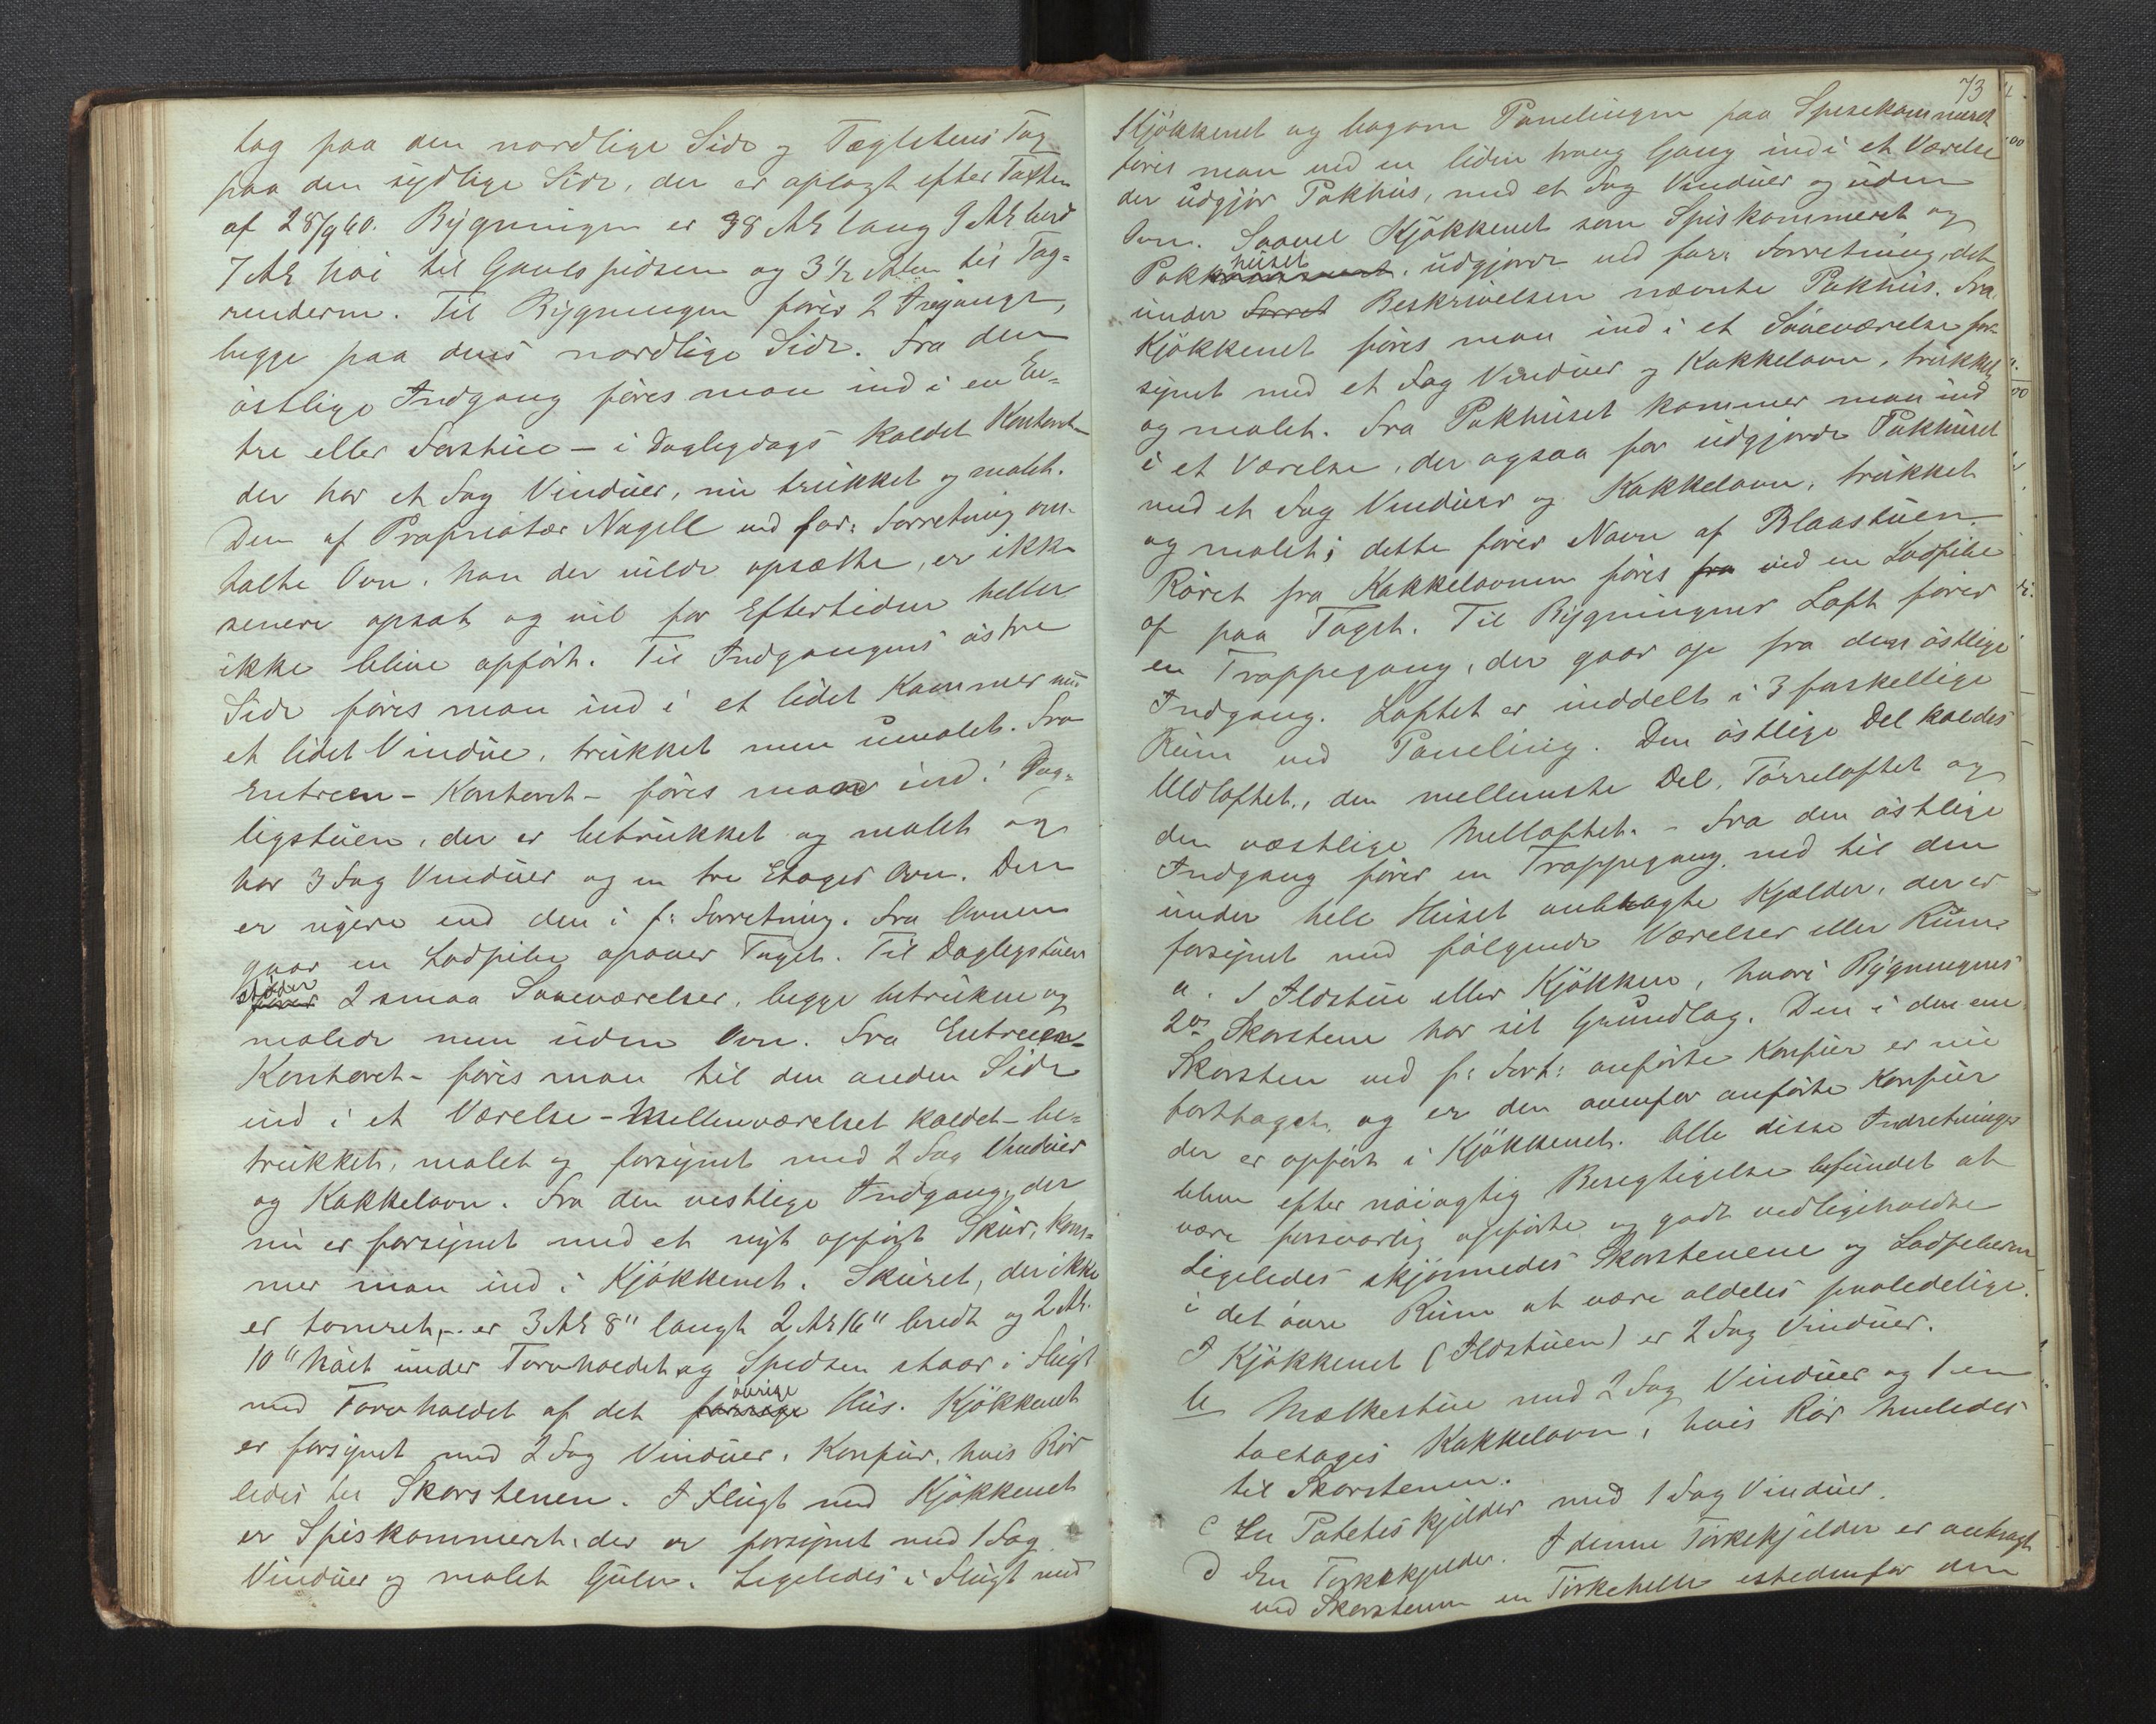 tag paa den nordlige Side og Tæglstens Tag
paa den sydlige Side, der er oplagt efter Taxten
af 28/9 60. Bygningen er 38 Al lang 9 Al bred
7 Al høi til Gavlspidsen og 3 1/2 Alen til Tag=
renderne. Til Bygningen fører 2 Indgange,
begge paa dens nordlige Side. Fra den
østlige Indgang føres man ind i en En=
tre eller Forstue - i Daglegdags kaldet Kontoret -
der har et Fag Vinduer, nu trukket og malet.
Den af Proprietær Nagell ved for: Forretning om=
talte Ovn, han der vilde opsætte, er ikke
senere opsat og vil for Eftertiden heller
ikke blive opført. Til Indgangens østre
Side føres man ind i et lidet Kammer med
et lidet Vindue, trukket men umalet. Fra
Entreen - Kontoret - føres man ind i Dag=
ligstuen, der er betrukket og malet og
har 3 Fag Vinduer og en tre Etages Ovn. Den
er rigere end den i f: Forretning. Fra Ovnen
gaar en Lodpibe opover Taget. Til Daglegstuen
støder
fører 2 smaa Soveværelser, begge betrukne og
malede men uden Ovn. Fra Entreen -
Kontoret - føres man til den anden Side
ind i et Værelse - Mellemværelset kaldet - be=
trukket, malet og forsynet med 2 Fag Vinduer
og Kakkelovn. Fra den vestlige Indgang, der
nu er forsynet med et nyt opført Skur, kom=
mer man ind i Kjøkkenet. Skuret, der ikke
er tømret, - er 3 Al 8" langt 2 Al 16" bredt og 2 Al.
10" høit under Torvholdet og Spidsen staar i Flugt
øvrige
med Torvholdet af det forrige Hus. Kjøkkenet
er forsynet med 2 Fag Vinduer, Komfur, hvis Rør
ledes til Skorstenen. I Flugt med Kjøkkenet
er Spiskammeret, der er forsynet med 1 Fag
Vinduer og malet Gulv. Ligeledes i Flugt med
73
Kjøkkenet og bagom Panelingen paa Spisekammeret
føres man ved en liden trang Gang ind i et Værelse
der udgjør Pakhus, med et Fag Vinduer og uden
Ovn. Saavel Kjøkkenet som Spiskammeret og
huset
Pak udgjorde ved for: Forretning, det
under Forret Beskrivelsen nævnte Pakhus. Fra
Kjøkkenet føres man ind i et Soveværelse for=
synet med et Fag Vinduer og Kakkelovn, trukket
og malet. Fra Pakhuset kommer man ind
i et Værelse, der ogsaa før udgjorde Pakhuset
med et Fag Vinduer og Kakkelovn, trukket
og malet; dette fører Navn af Blaastuen.
Røret fra Kakkelovnen føres fra ved en Lodpibe
op paa Taget. Til Bygningens Loft fører
en Trappegang, der gaar op fra den østlige
Indgang. Loftet er inddelt i 3 forskellige
Rum ved Paneling. Den østlige Del kaldes
Uldloftet, den mellemste Del, Tørreloftet og
den vestlige Melloftet. - Fra den østlige
Indgang fører en Trappegang ned til den
under hele Huset anbragte Kjælder, der er
forsynet med følgende Værelser eller Rum.
a. 1 Ildstue eller Kjøkken, hvori Bygningens
2de Skorstene har sit Grundlag. Den i den ene
Skorsten ved f: Forr: anførte Komfur er nu
forttaget, og er den ovenfor anførte Komfur
der er opført i Kjøkkenet. Alle disse Indretninger
blev efter nøiagtig Besegtigelse befundet at
være forsvarlig opførte og godt vedligeholdte
Ligeledes skjønnedes Skorstenene og Lodpiberne
i det øvre Rum at være aldeles paaledelige.
I Kjøkkenet (Ildstuen) er 2 Fag Vinduer.
b Mælkestue med 2 Fag Vinduer og 1 en
toetages Kakkelovn, hvis Rør henledes
til Skorstenen.
c En Potetes kjelder med 1 Fag Vinduer.
d En Tørkekjelder. I denne Tørkekjelder er anbragt
ved Skorstenen en Tørkehelle istedenfor den